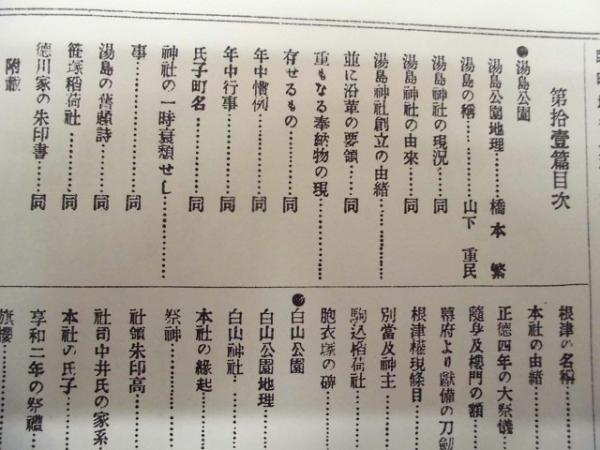 第拾壹篇目次
●湯島公園
湯島公園地理………橋本 繁
湯島の稱………山下 重民
湯島神社の現況………同
湯島神社の由來………同
湯島神社創立の由緒
並に沿革の要領………同
重もなる奉納物の現
存せるもの………同
年中慣例………同
年中行事………同
氏子町名………同
神社の一時衰頽せし
事………同
湯島の舊題詩………同
笹塚稻荷社………同
德川家の朱印書………同
附載
根津の名稱………
本社の由緒………
正德四年の大祭儀………
隨身及樓門の額………
幕府より獻備の刀劍
根津權現條目………
別當及神主………
駒込稻荷社………
胞衣塚の碑………
●白山公園
白山公園地理………
白山神社………
本社の緣起………
祭神………
社領朱印高………
社司中井氏の家系
本社の氏子………
享和二年の祭禮………
旗櫻………